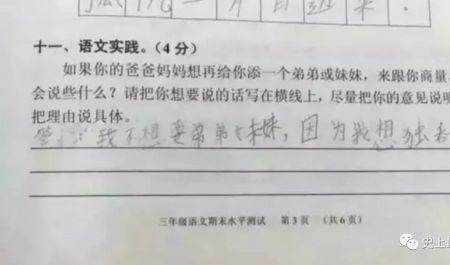 一 个 自 题 来 .
十一、语文实践。(4分)
如果你的爸爸妈妈想再给你添一个弟弟或妹妹,来跟你商量,
会说些什么?请把你想要说的话写在横线上,尽量把你的意见说明
把理由说具体。
答:我不想要弟弟妹妹,因为我想独
三年级语文期末水平测试 第3页 (共6页)
史上